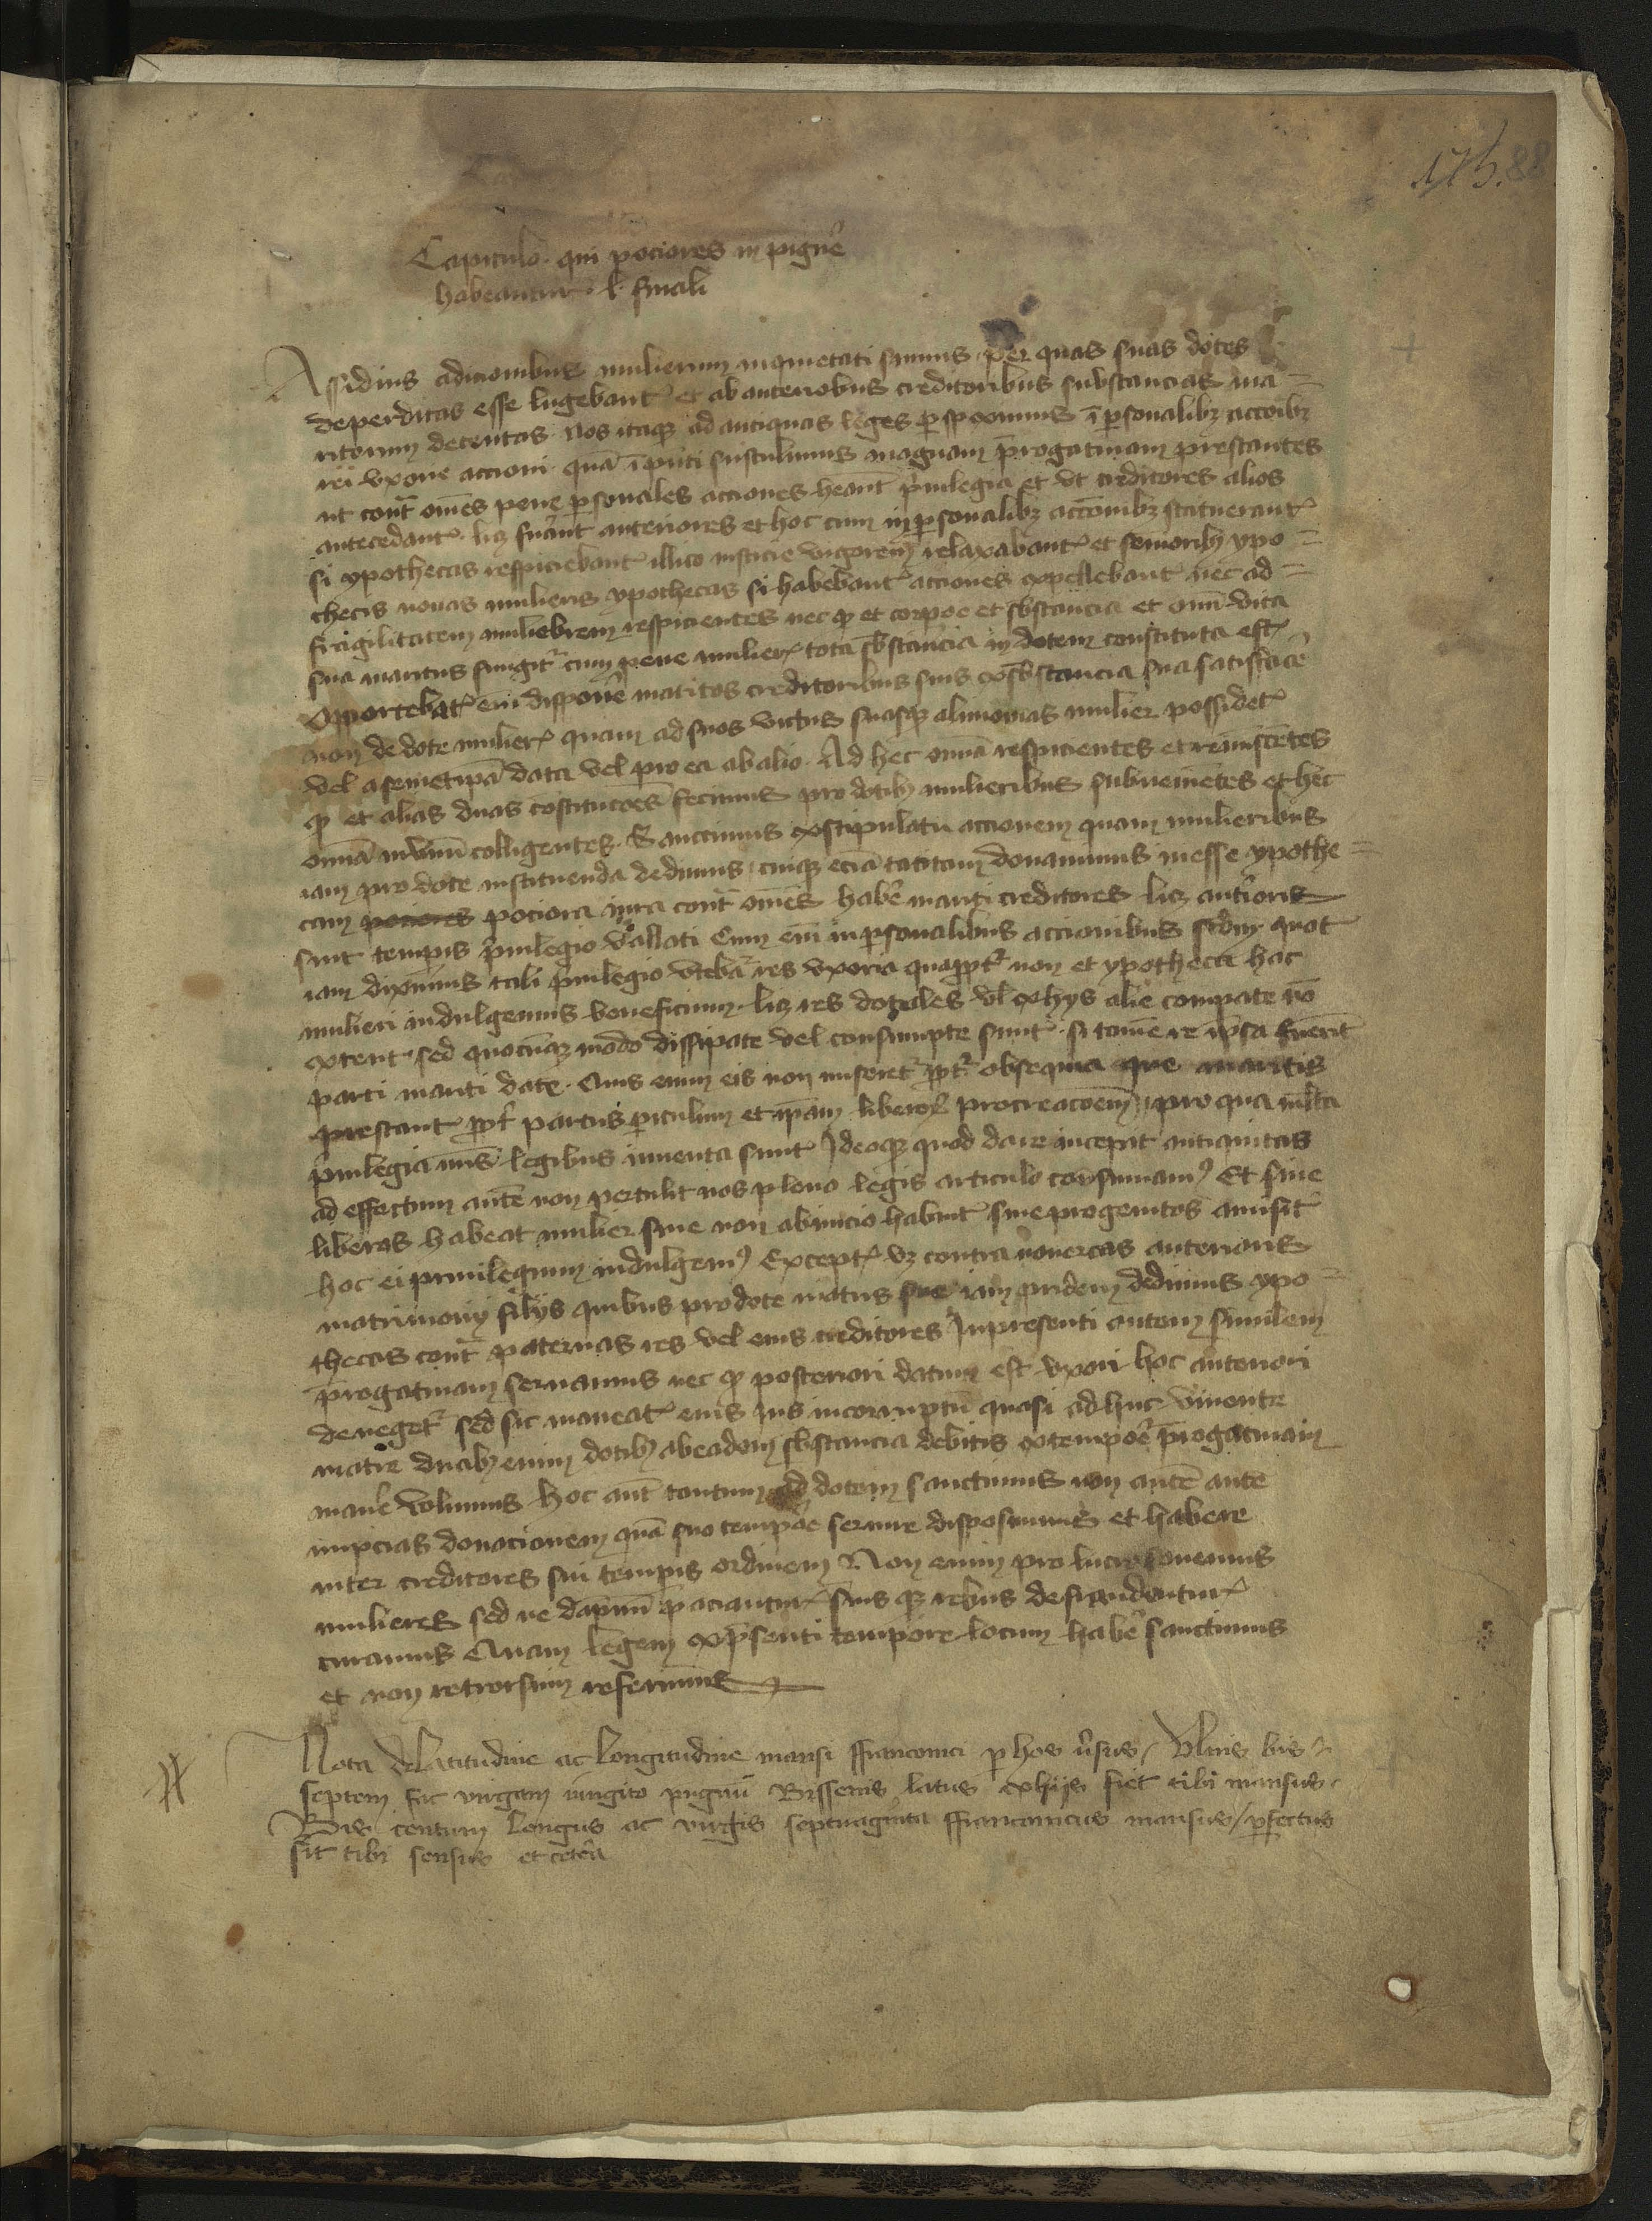 175. 88
Capitulo qui pociores in pignore
habeantur l. finali
Assiduis adicionibus mulierum inquietati sumus per quas suas dotes
deperditas esse lugebant et ab anterioribus creditoribus substancias ma=
ritorum detentas. Nos itaque ad antiquas leges perspeximus in personalibus accionibus
rei vxorie accioni quam in presenti sustulimus magnam prerogatiuam prestantes
ut contra omnes pene personales acciones habeant priuilegia et vt creditores alios
antecedant licet fuerint anteriores et hoc cum in personalibus accionibus statuerant
si ypothecas respiciebant illico iusticie vigorem relaxabant et senioribus ypo=
thecis nouas mulieris ypothecas si habebant acciones expellebant nec ad=
fragilitatem muliebrem respicientes nec quod et corpore et substancia et omni vita
sua maritus fungitur cum pene mulierum tota substancia in dotem constituta est
Opportebat enim disponere maritos creditoribus suis ex substancia sua satisfacere
non de dote mulierum quam ad suos victus suasque alimonias mulier possidet
vel a semetipsa data vel pro ea ab alio. Ad hec omnia respicientes et reminiscentes
quod et alias duas constituciones fecimus pro dotibus mulieribus subuenientes et hec
omnia in vnum colligentes. Sanccimus ex stipulatu accionem quam mulieribus
iam pro dote instituenda dedimus cuique eciam tacitam donauimus inesse ypothe=
cam pociores pociora iura contra omnes habere mariti creditores licet anterioris
sint temporis priuilegio vallati Cum enim in personalibus accionibus secundum quot
iam diximus tali priuilegio vtebatur res vxoria quapropter non et ypotheca hac
mulieri indulgemus beneficium licet res dotales vel ex hys alie comparate non
extent sed quocumque modo dissipate vel consumpte sunt si tamen re ipsa fuerint
parti mariti date. Quis enim eis non miseretur propter obsequia que maritis
prestant propter partus periculum et ipsam liberorum procreacionem pro qua multa
priuilegia nostris legibus inuenta sunt Ideoque quod dare incepit antiquitas
ad effectum autem non pertulit nos pleno legis articulo consumamus Et siue
liberos habeat mulier siue non ab inicio habuit siue progenitos amisit
hoc ei priuilegium indulgemus Exceptis videlicet contra nouercas anterioris
matrimonij filijs quibus pro dote matris sue iam pridem dedimus ypo=
thecas contra paternas res vel eius creditores In presenti autem similem
prerogatiuam seruamus nec quod posteriori datum est vxori hoc anteriori
denegetur sed sic maneat eius ius incorruptum quasi adhuc viuente
matre duabus enim dotibus ab eadem substancia debitis ex tempore prerogatiuam
manere volumus Hoc autem tantum ad dotem sanctimus non autem ante
nupcias donacionem quam suo tempore seruire disposuimus et habere
inter creditores sui temporis ordinem Non enim pro lucro fouemus
mulieres sed ne dampnum paciantur suisque rebus defraudentur
curamus Quam legem ex presenti tempore locum habere sanctimus
et non retrorsum referimus
Nota de latitudine ac longitudine mansi ffranconici per hos versus / Vlnis bis
septem fac virgam iungito pugnum Bissenis latus ex hijs fiet tibi mansus
Bis centum longus ac virgis septuaginta ffranconicus mansus / perfectus
sit tibi sensus et cetera